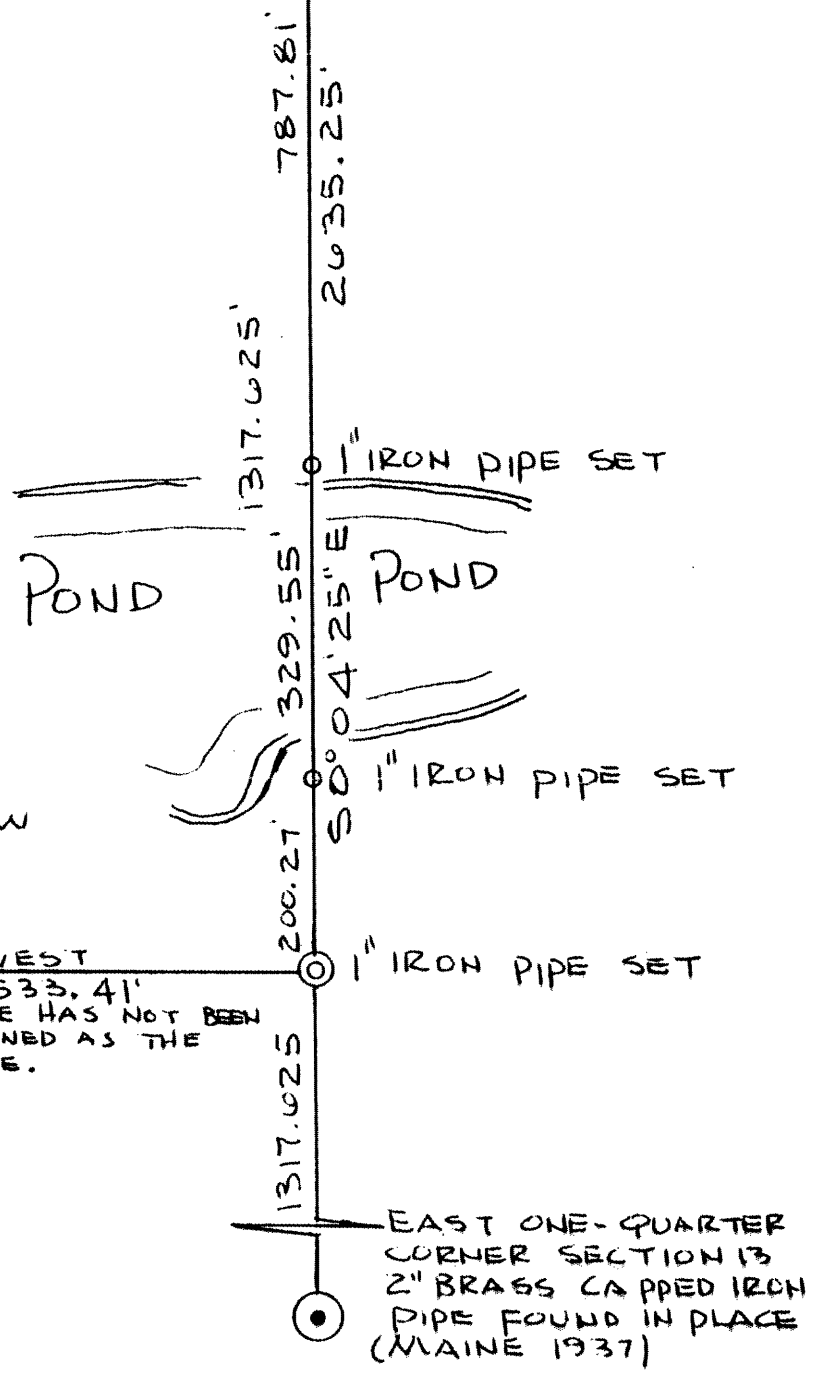 787.81'
2635.25'
1317.625'
1" IRON PIPE SET
329.55'
S 0° 04'25" E
POND
POND
1" IRON PIPE SET
W
200.27'
WEST
533.41'
1" IRON PIPE SET
E HAS NOT BEEN
NED AS THE
E.
1317.625
EAST ONE-QUARTER
CORNER SECTION 13
2" BRASS CAPPED IRON
PIPE FOUND IN PLACE
(MAINE 1937)